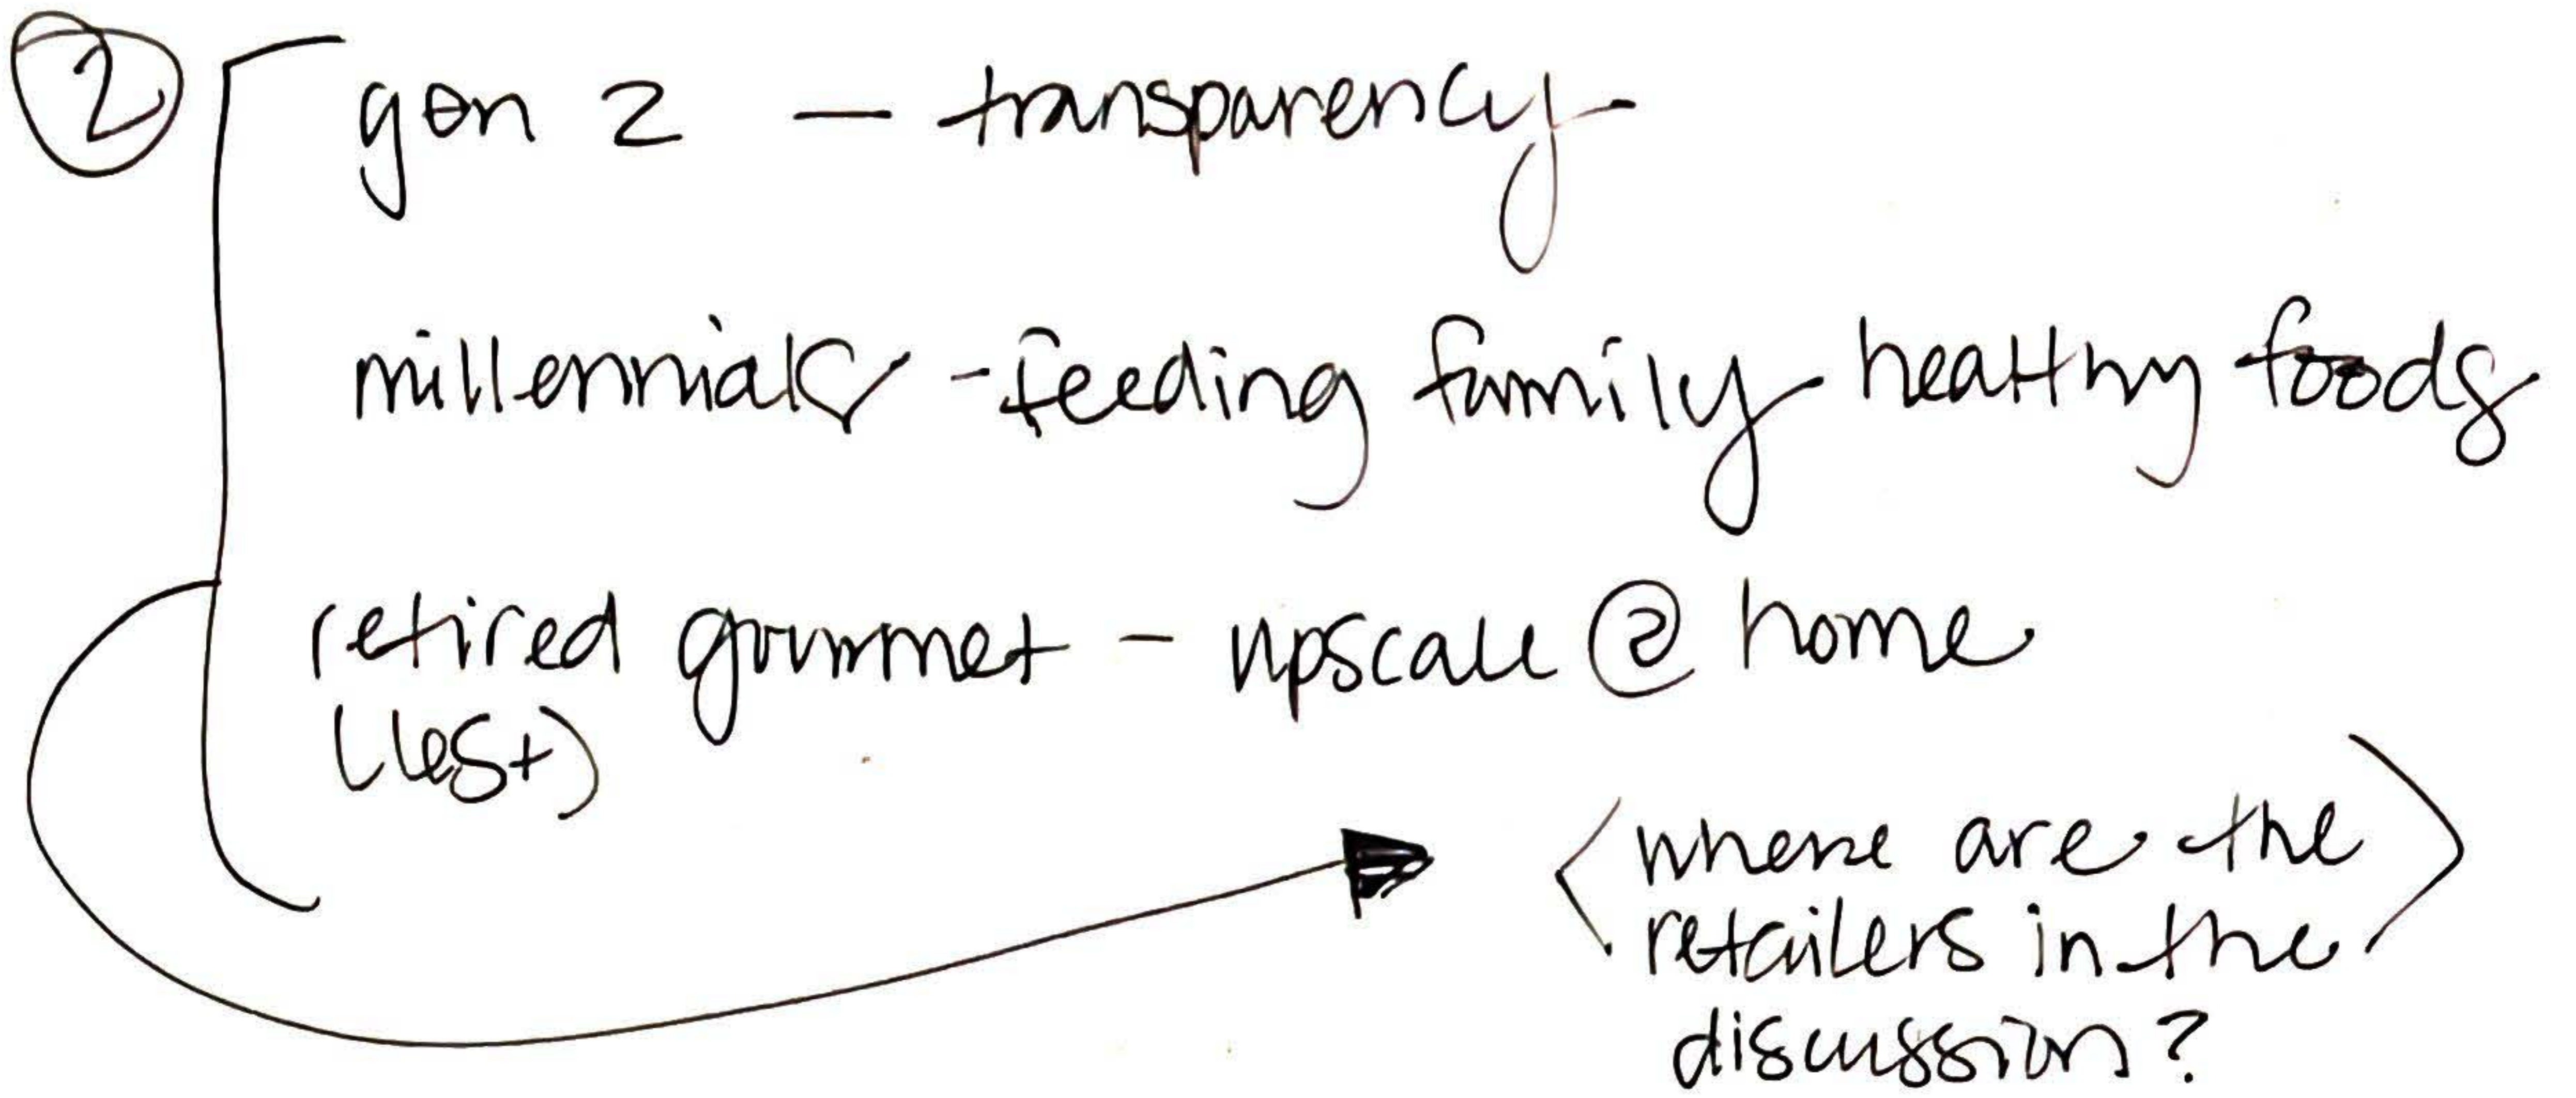 ②
gen z — transparency
millennials - feeding family healthy foods
retired gourmet - upscale @ home
(65+)
<where are the
retailers in the
discussion?>